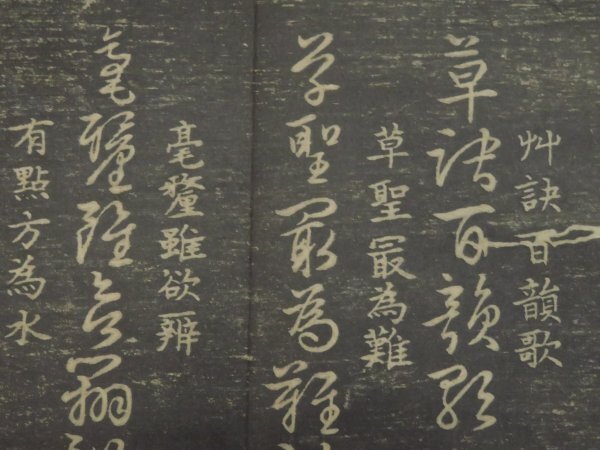 艸訣百韻歌
草訣百韻歌
草聖最為難
草聖最為難
毫釐雖欲辨
毫釐雖欲辨
有點方為水